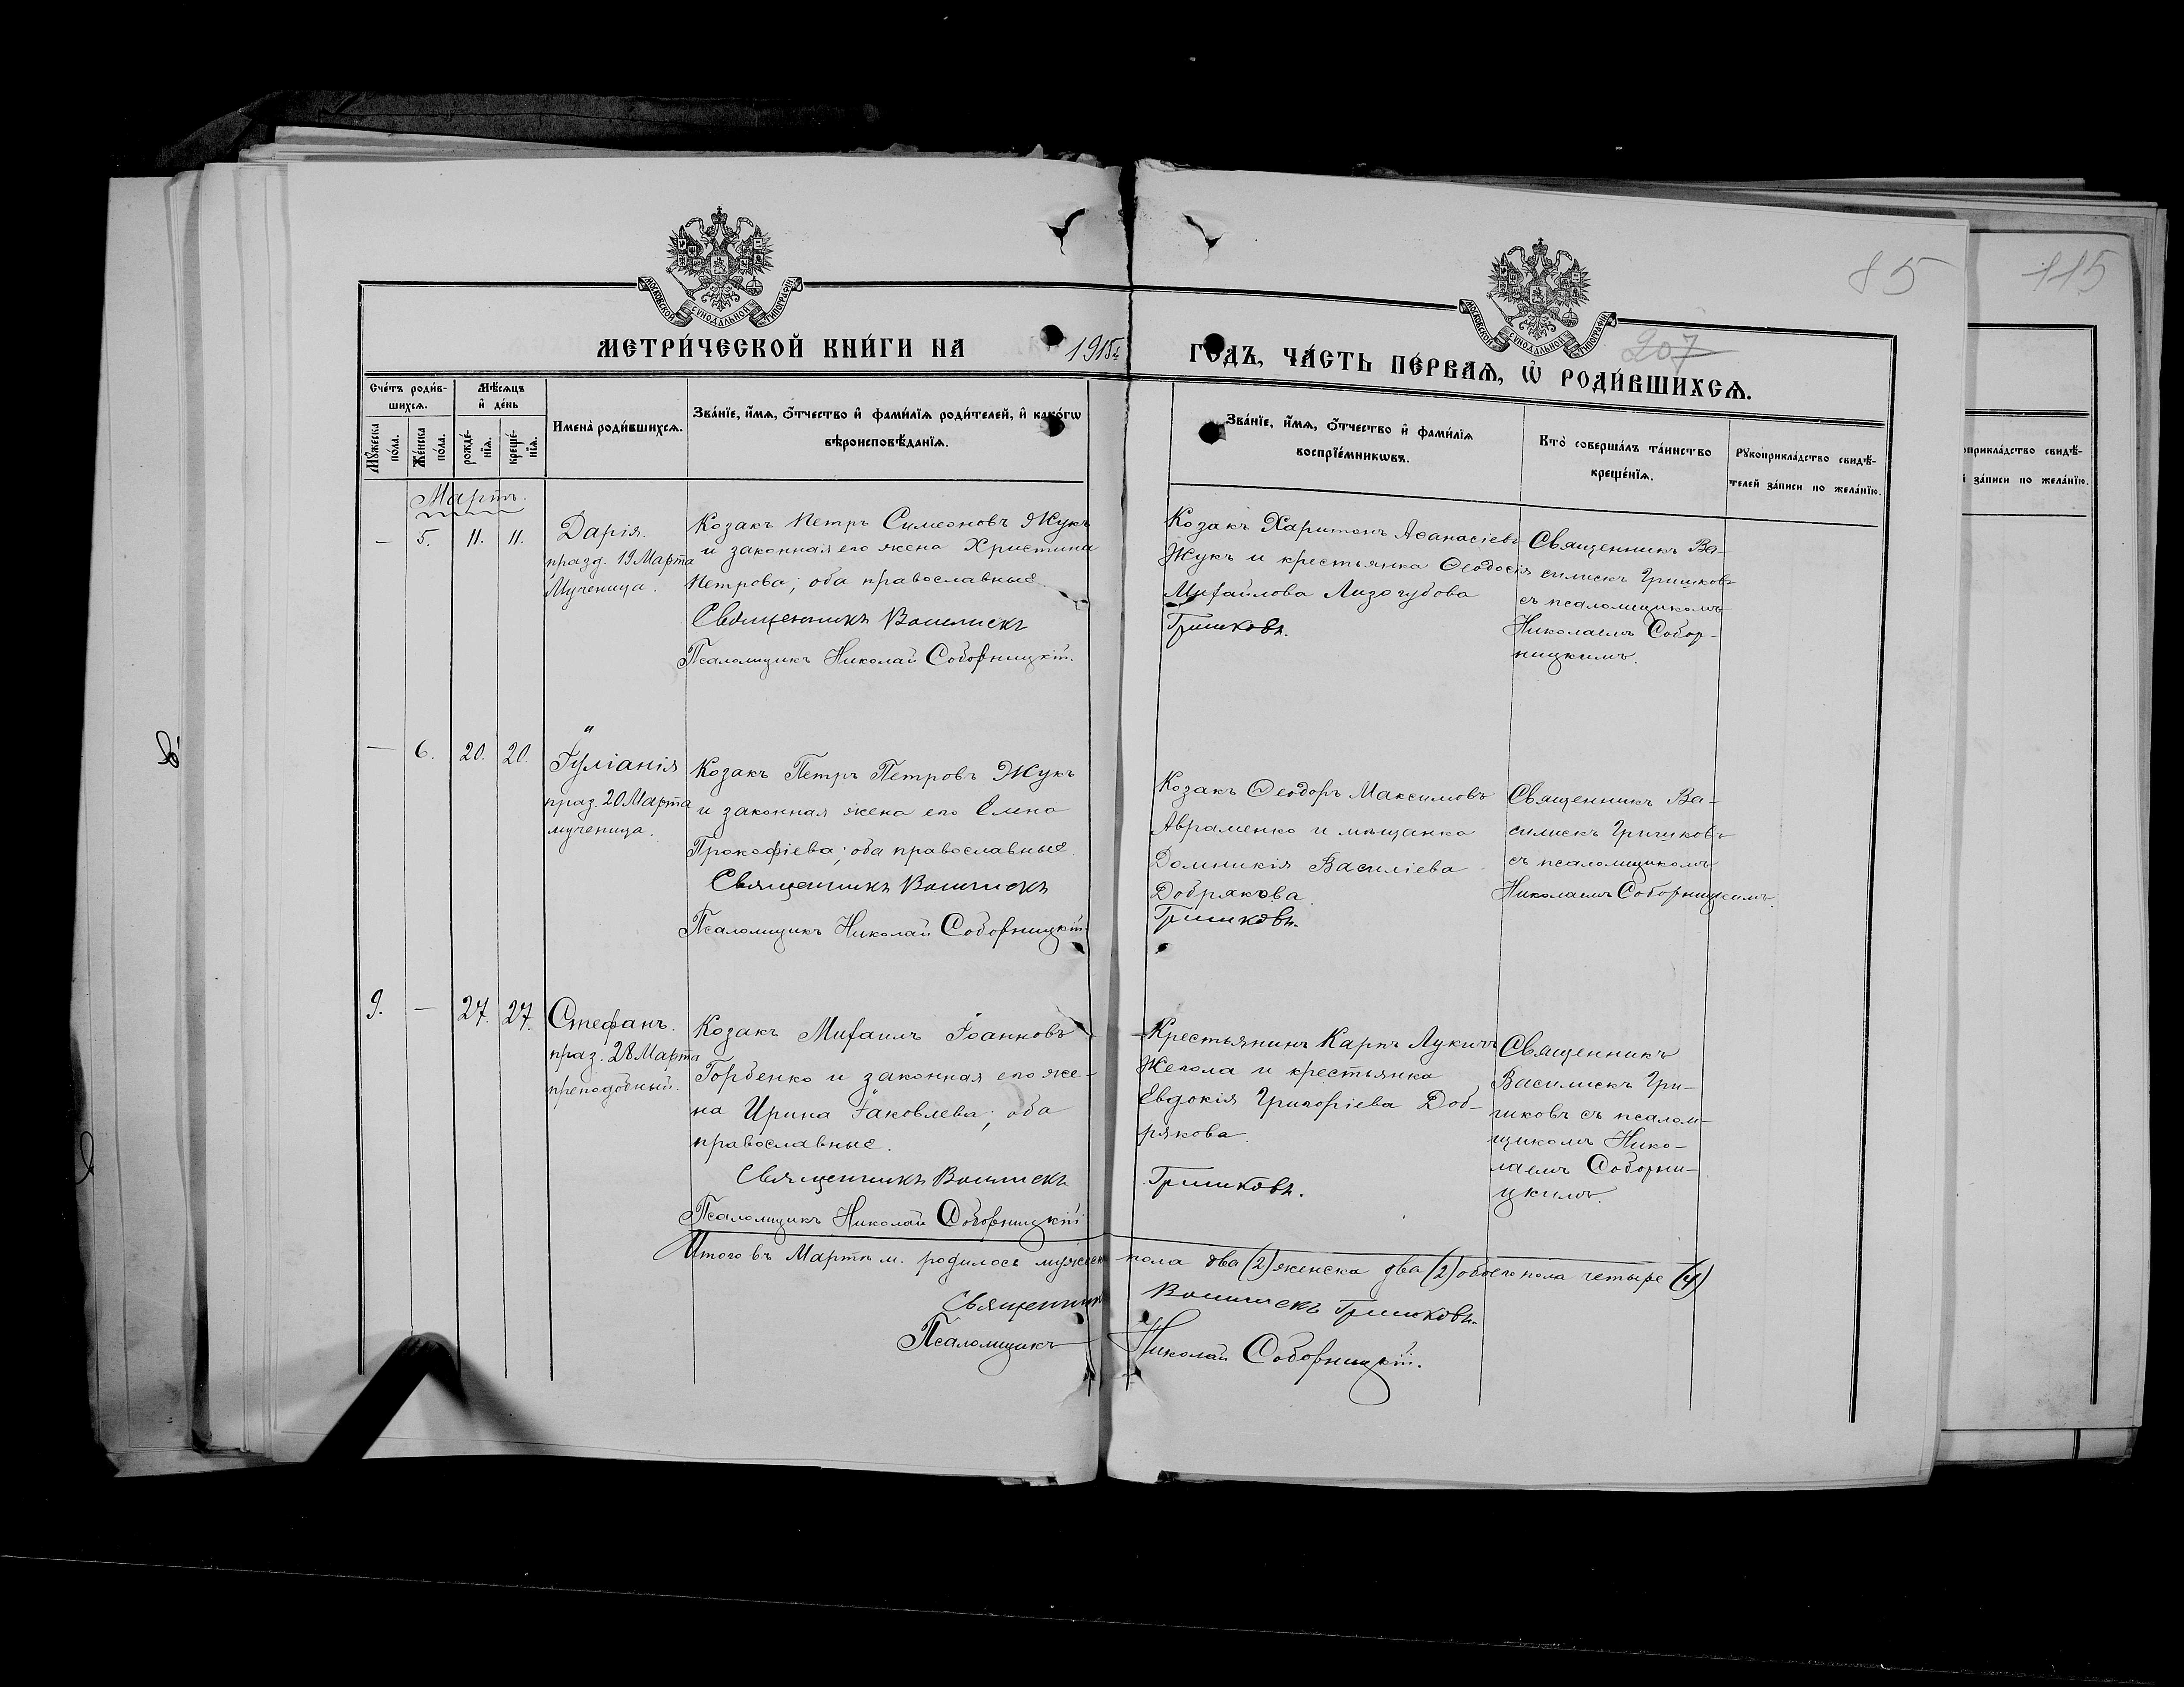 МОСКОВСКОЙ СУНОДАЛЬНОЙ ТИПОГРАФІИ
МОСКОВСКОЙ СУНОДАЛЬНОЙ ТИПОГРАФІИ
85
115
207
МЕТРИ́ЧЕСКОЙ КНИ́ГИ НА 1915 г. ГОДЪ, ЧА́СТЬ ПЕ́РВАѦ, Ѡ РОДИ́ВШИХСѦ.
Сче́тъ роди́в-
шихсѧ.
Мꙋ́жеска по́ла.
Же́нска по́ла.
Мѣ́сѧцъ
и де́нь
рожде́-
нїѧ.
креще́-
нїѧ.
Имена̀ роди́вшихсѧ.
Зва́нїе, и́мѧ, о́тчество и фами́лїѧ роди́телей, и како́гѡ
вѣроисповѣ́данїѧ.
Зва́нїе, и́мѧ, о́тчество и фами́лїѧ
воспрїе́мникѡвъ.
Кто̀ соверша́лъ та́инство
креще́нїѧ.
Рꙋкоприкла́дство свидѣ́-
телей за́писи по жела́нїю.
оприкла́дство свидѣ́-
за́писи по жела́нїю.
Мартъ.
— 5. 11. 11.
Дарія.
празд. 19 Марта
Мученица.
Козакъ Петръ Симеоновъ Жукъ
и законная его жена Христина
Петрова; оба православные.
Священникъ Василискъ
Псаломщикъ Николай Соборницкій.
Козакъ Харитонъ Аѳанасіевъ
Жукъ и крестьянка Ѳеодосія
Михайлова Лизогубова
Гришковъ.
Священникъ Ва-
силискъ Гришковъ
съ псаломщикомъ
Николаемъ Собор-
ницкимъ.
— 6. 20. 20.
Іуліанія
праз. 20 Марта
мученица.
Козакъ Петръ Петровъ Жукъ
и законная жена его Елена
Прокофіева; оба православные.
Священникъ Василискъ
Псаломщикъ Николай Соборницкій.
Козакъ Ѳеодоръ Максимовъ
Авраменко и мѣщанка
Домникія Василіева
Добрякова.
Гришковъ.
Священникъ Ва-
силискъ Гришковъ
съ псаломщикомъ
Николаемъ Соборницкимъ.
9. — 27. 27.
Стефанъ.
праз. 28 Марта
преподобный.
Козакъ Михаилъ Іоанновъ
Горбенко и законная его же-
на Ирина Іаковлева; оба
православные.
Священникъ Василискъ
Псаломщикъ Николай Соборницкій
Крестьянинъ Карпъ Лукичъ
Жегола и крестьянка
Евдокія Григоріева Доб-
рякова.
Гришковъ.
Священникъ
Василискъ Гри-
шковъ съ псалом-
щикомъ Нико-
лаемъ Соборни-
цкимъ.
Итого въ Мартѣ м. родилось мужеска пола два (2) женска два (2) обоего пола четыре (4)
Священникъ Василискъ Гришковъ.
Псаломщикъ Николай Соборницкій.